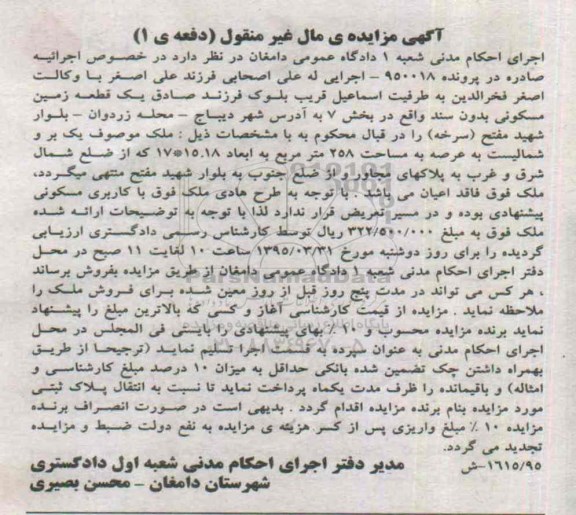 آگهی مزایده ی مال غیر منقول (دفعه ی ۱)
اجرای احکام مدنی شعبه ۱ دادگاه عمومی دامغان در نظر دارد در خصوص اجرائیه
صادره در پرونده ۹۵۰۰۱۸ - اجرایی له علی اصحابی فرزند علی اصغر با وکالت
اصغر فخرالدین به طرفیت اسماعیل قریب بلوک فرزند صادق یک قطعه زمین
مسکونی بدون سند واقع در بخش ۷ به آدرس شهر دیباج - محله زردوان - بلوار
شهید مفتح (سرخه) را در قبال محکوم به با مشخصات ذیل : ملک موصوف یک بر و
شمالیست به عرصه به مساحت ۲۵۸ متر مربع به ابعاد ۱۵.۱۸*۱۷ که از ضلع شمال
شرق و غرب به پلاکهای مجاور و از ضلع جنوب به بلوار شهید مفتح منتهی میگردد،
ملک فوق فاقد اعیان می باشد . با توجه به طرح هادی ملک فوق با کاربری مسکونی
پیشنهادی بوده و در مسیر تعریض قرار ندارد لذا با توجه به توضیحات ارائه شده
ملک فوق به مبلغ ۳۲۲/۵۰۰/۰۰۰ ریال توسط کارشناس رسمی دادگستری ارزیابی
گردیده را برای روز دوشنبه مورخ ۱۳۹۵/۰۳/۳۱ ساعت ۱۰ لغایت ۱۱ صبح در محل
دفتر اجرای احکام مدنی شعبه ۱ دادگاه عمومی دامغان از طریق مزایده بفروش برساند
، هر کس می تواند در مدت پنج روز قبل از روز معین شده برای فروش ملک را
ملاحظه نماید . مزایده از قیمت کارشناسی آغاز و کسی که بالاترین مبلغ را پیشنهاد
نماید برنده مزایده محسوب و ۱۰٪ بهای پیشنهادی را بایستی فی المجلس در محل
اجرای احکام مدنی به عنوان سپرده به قسمت اجرا تسلیم نماید (ترجیحا از طریق
بهمراه داشتن چک تضمین شده بانکی حداقل به میزان ۱۰ درصد مبلغ کارشناسی و
امثاله) و باقیمانده را ظرف مدت یکماه پرداخت نماید تا نسبت به انتقال پلاک ثبتی
مورد مزایده بنام برنده مزایده اقدام گردد . بدیهی است در صورت انصراف برنده
مزایده ۱۰ ٪ مبلغ واریزی پس از کسر هزینه ی مزایده به نفع دولت ضبط و مزایده
تجدید می گردد.
۱۶۱۵/۹۵-ش
مدیر دفتر اجرای احکام مدنی شعبه اول دادگستری
شهرستان دامغان - محسن بصیری
ParsNamadData